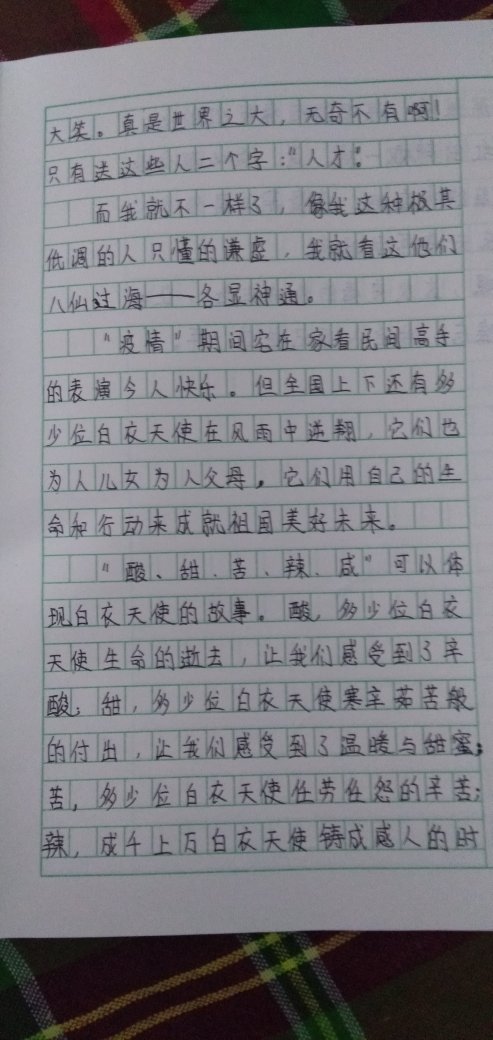 大笑。真是世界之大，无奇不有啊！
只有送这些人二个字：“人才”。
而我就不一样了，像我这种极其
低调的人只懂的谦虚，我就看这他们
八仙过海——各显神通。
“疫情”期间宅在家看民间高手
的表演令人快乐。但全国上下还有多
少位白衣天使在风雨中逆翔，它们也
为人儿女为人父母，它们用自己的生
命和行动来成就祖国美好未来。
“酸、甜、苦、辣、咸”可以体
现白衣天使的故事。酸，多少位白衣
天使生命的逝去，让我们感受到了辛
酸；甜，多少位白衣天使寒辛茹苦般
的付出，让我们感受到了温暖与甜蜜；
苦，多少位白衣天使任劳任怨的辛苦；
辣，成千上万白衣天使铸成感人的时